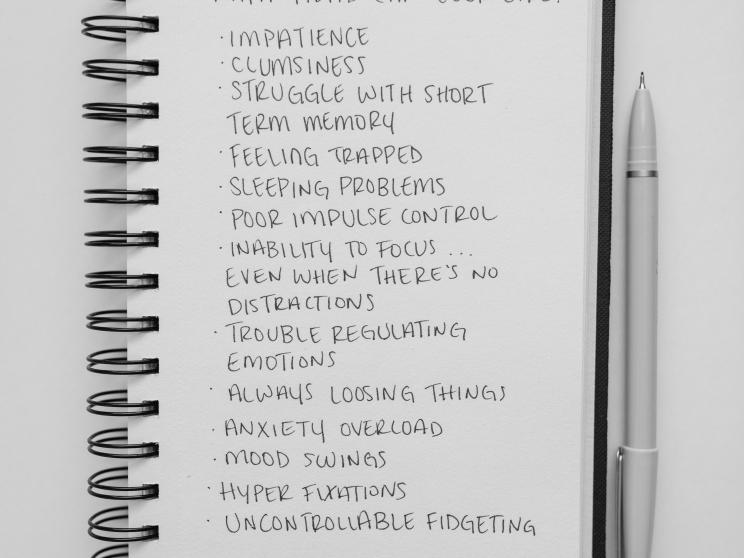 · IMPATIENCE
· CLUMSINESS
· STRUGGLE WITH SHORT
TERM MEMORY
· FEELING TRAPPED
· SLEEPING PROBLEMS
· POOR IMPULSE CONTROL
· INABILITY TO FOCUS ...
EVEN WHEN THERE'S NO
DISTRACTIONS
· TROUBLE REGULATING
EMOTIONS
· ALWAYS LOOSING THINGS
· ANXIETY OVERLOAD
· MOOD SWINGS
· HYPER FIXATIONS
· UNCONTROLLABLE FIDGETING